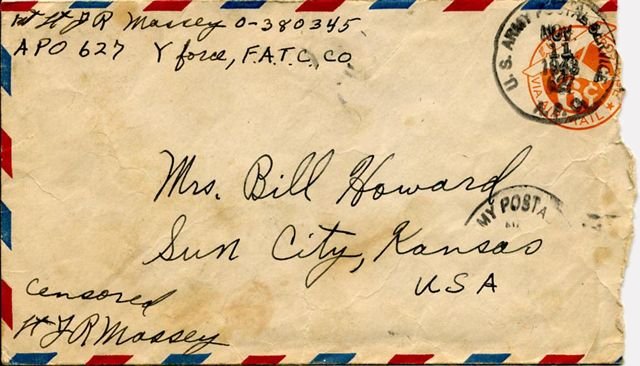 1st Lt J R Massey O-380345
APO 627 Y force, F.A.T.C. Co
U.S. ARMY POSTAL SERVICE
NOV
11
1943
A.P.O.
VIA AIR MAIL
Mrs. Bill Howard
MY POSTA
Sun City, Kansas
USA
Censored
Lt J R Massey